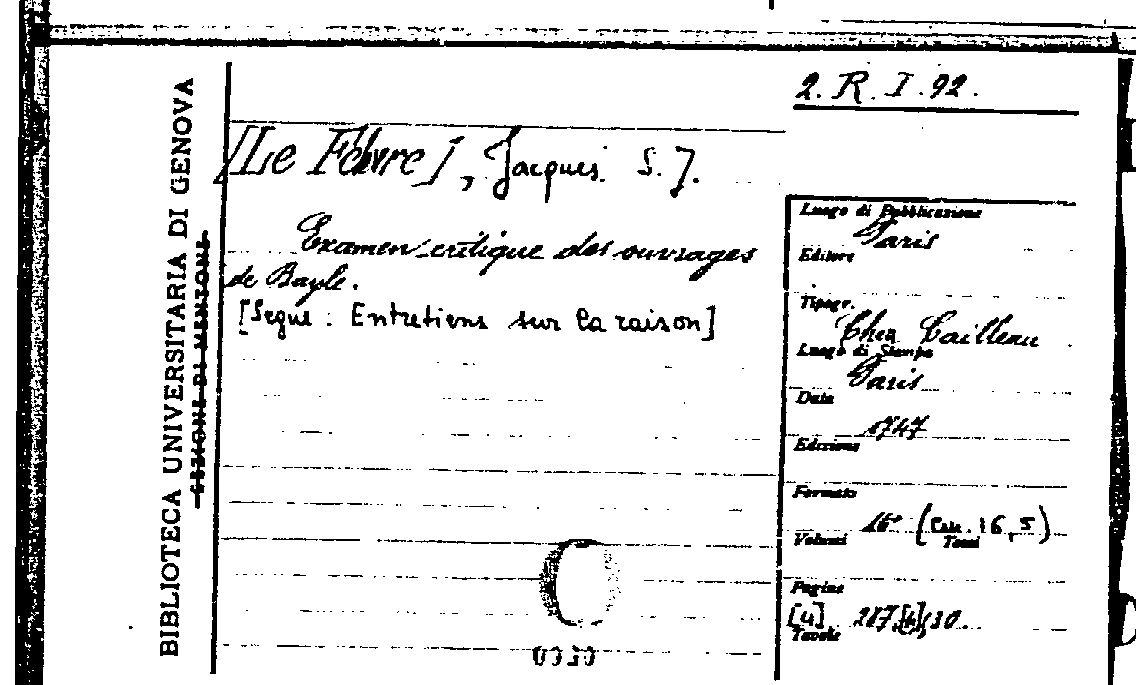 BIBLIOTECA UNIVERSITARIA DI GENOVA
SEZIONE DI MENTONE
2. R. I. 92.
[Le Febvre], Jacques S. J.
Examen critique des ouvrages
de Bayle.
[Segue : Entretiens sur la raison]
Luogo di Pubblicazione
Paris
Editore
Tipogr.
Chez Cailleau
Luogo di Stampa
Paris
Data
1747
Edizione
Formato
16° (cm. 16,5)
Volumi Tomi
Pagine
[4] 217
Tavole